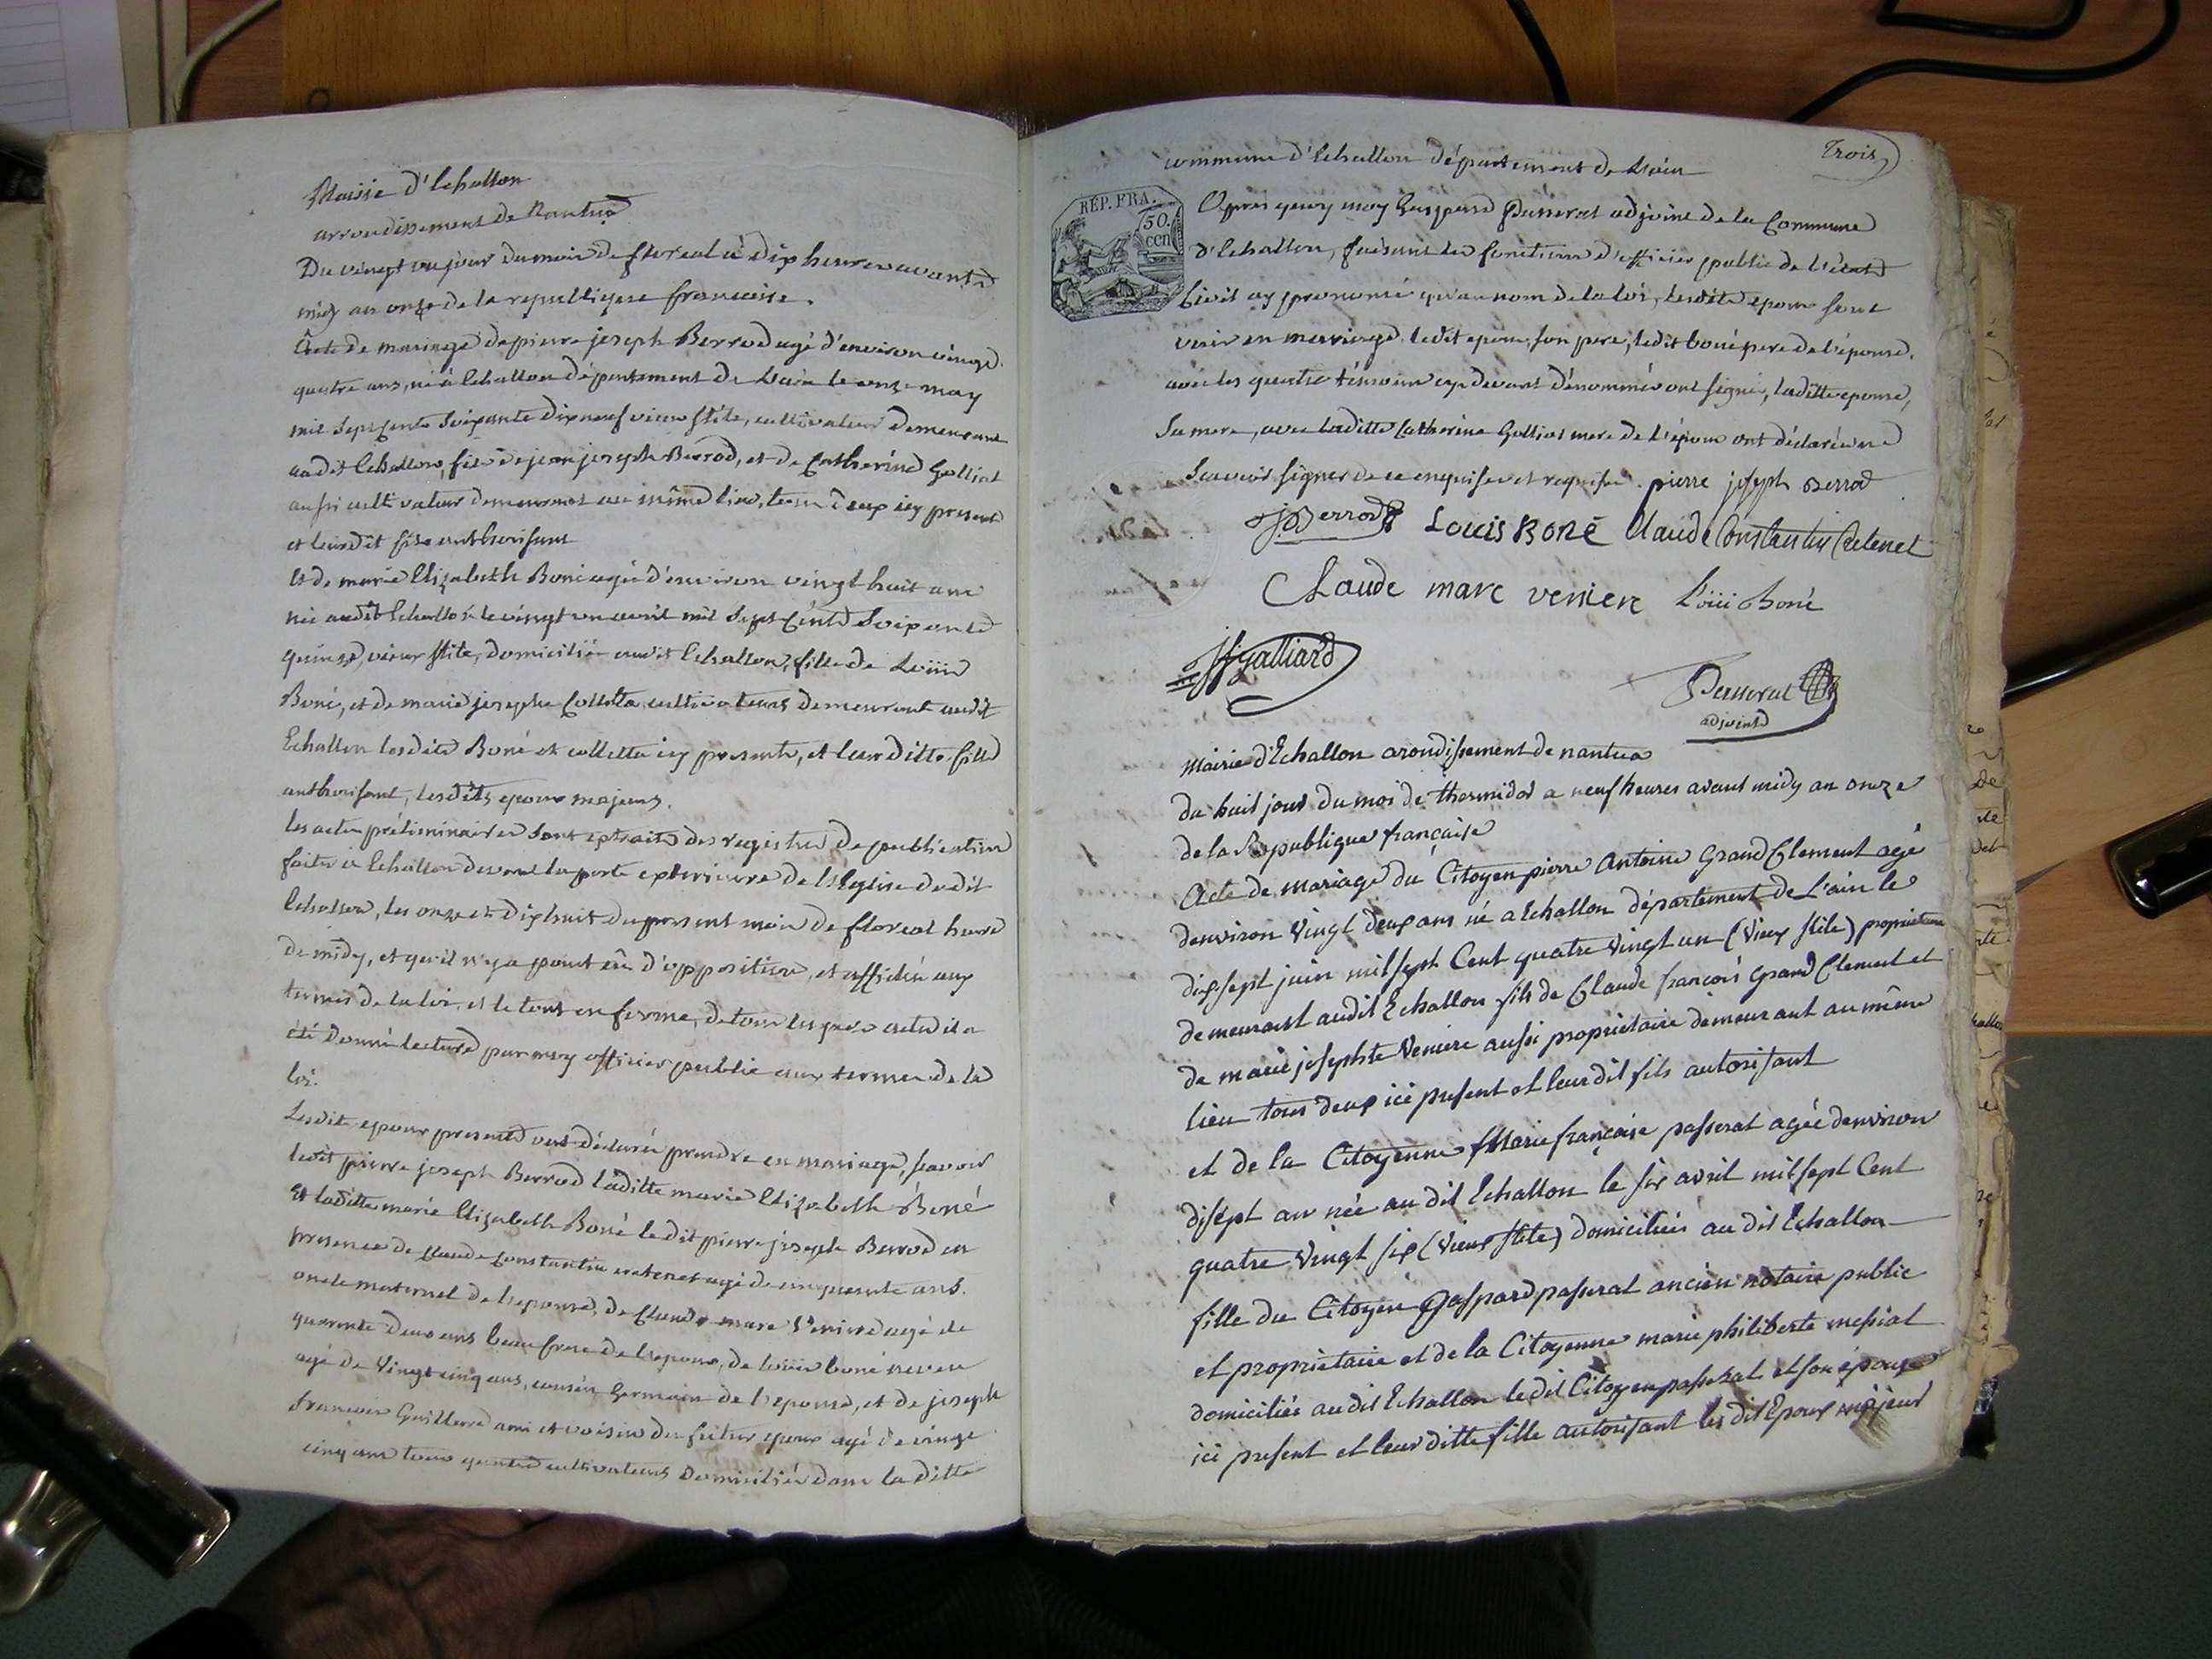 Mairie d'Echallon
arrondissement de Nantua
Du vingt un jour du mois de floreal à dix heures avant
midy an onze de la republique francaise.
Acte de mariage de pierre joseph Berrod agé d'environ vingt
quatre ans, né à Echallon département de L'ain le onze may
mil sept cents soixante dix neuf vieux stile, cultivateur demeurant
audit Echallon, fils de jean joseph Berrod, et de Catherine Golliet
aussi cultivateur demeurant au même lieu, tous deux icy present
et leurdit fils authorisant
Et de marie Elizabeth Boné agée d'environ vingt huit ans
née audit Echallon le vingt un avril mil sept Cents soixante
quinze, vieux stile, domiciliée audit Echallon, fille de Louis
Boné, et de marie josephe Colletta cultivateurs demeurant audit
Echallon lesdits Boné et colletta icy presents, et leurditte fille
authorisant, lesdits epoux majeurs.
les actes préliminaires sont extraits des registres de publication
faites à Echallon devant la porte exterieure de l'Eglise dudit
Echallon, les onze et dixhuit du present mois de floreal heure
de midy, et qu'il n'y a point eû d'opposition, et affichés aux
termes de la loi, et le tout en forme, de tous lesquels actes il a
été donné lecture par moy officier public aux termes de la
loi.
Lesdits epoux presents ont déclarés prendre en mariage, scavoir
ledit pierre joseph Berrod laditte marie Elizabeth Boné
Et laditte marie Elizabeth Boné ledit pierre joseph Berrod en
presence de Claude Constantin cretenet agé de cinquante ans.
oncle maternel de l'epouse, de Claude marc Veniere agé de
quarente deux ans beau frere de l'epoux, de louis boné neveu
agé de vingt cinq ans, cousin Germain de l'epouse, et de joseph
francois ami et voisin du futur epoux agé de vingt
cinq ans tous quatre cultivateurs domiciliés dans la ditte
Trois
commune d'Echallon département de L'ain
RÉP. FRA.
50. cen
Après quoy moy Gaspard Passerat adjoint de la Commune
d'Echallon, faisant les fonctions d'officier public de l'état
Civil ay prononcé qu'au nom de la loi, lesdits epoux sont
unis en mariage. ledit epoux, son pere, ledit boné pere de l'épouse,
avec les quatre témoins cy devant dénommés ont signés, laditte epouse,
Sa mere, avec laditte Catherine Golliet mere de l'époux ont déclarées ne
Scavoir signer de ce enquises et requises. pierre joseph Berrod
J.J. Berrod Louis Boné Claude Constantin Cretenet
Claude marc veniere Louis Boné
J f galliard
Passerat
adjoint
Mairie d'Echallon arondissement de nantua
du huit jour du moi de thermidor a neuf heures avant midy an onze
de la Republique française
Acte de mariage du Citoyen pierre Antoine Grand Clement agé
denviron vingt deux ans né a Echallon département de L'ain le
dixsept juin mil sept Cent quatre vingt un (vieux stile) proprietaire
demeurant audit Echallon fils de Claude françois Grand Clement et
de marie josephte Veniere aussi proprietaire demeurant au même
lieu tous deux ici present et leur dit fils autorisant
et de la Citoyenne Marie française passerat agée denviron
disept an née au dit Echallon le six avril mil sept Cent
quatre vingt six (vieux stile) domiciliée au dit Echallon
fille du Citoyen Gaspard passerat ancien notaire public
et proprietaire et de la Citoyenne marie philiberte messiat
domiciliés au dit Echallon le dit Citoyen passerat et son épouse
ici present et leur ditte fille autorisant les dit Epoux majeur